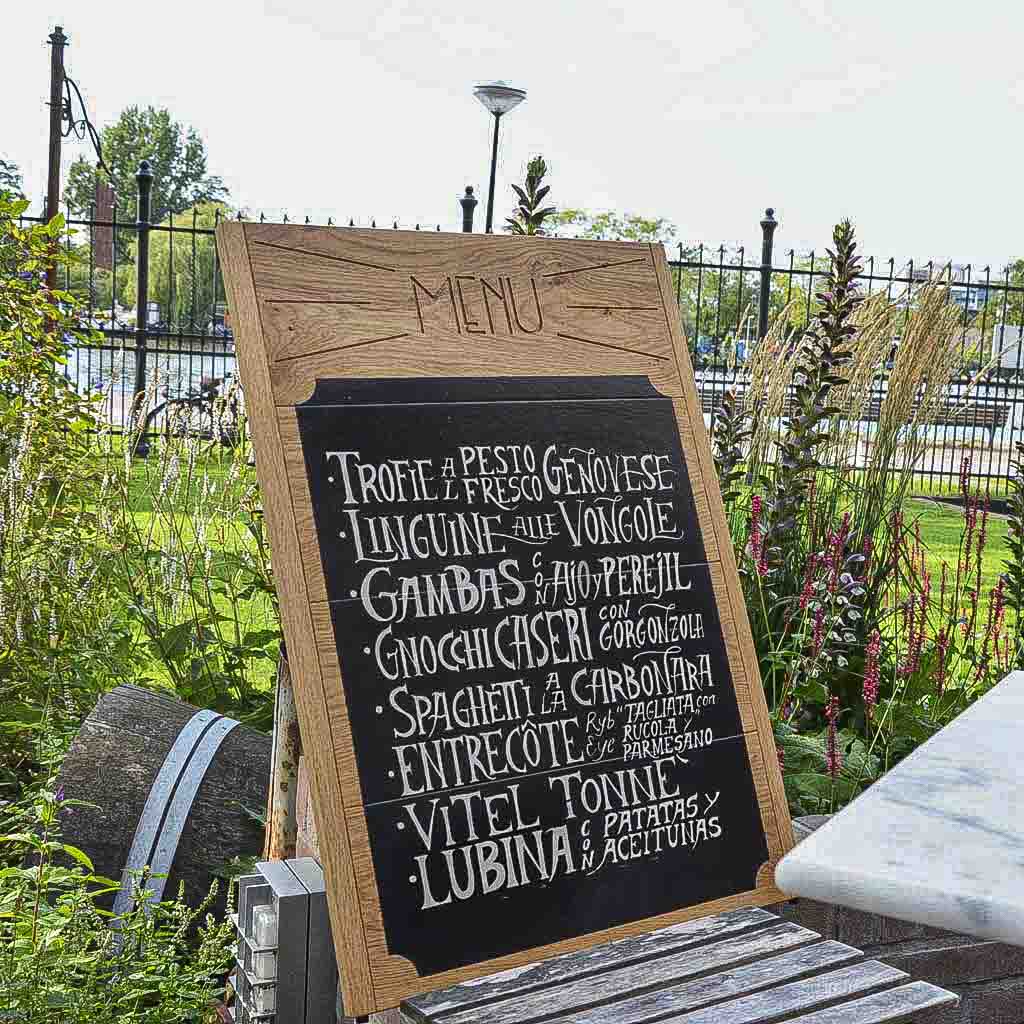 MENU
· TROFIE AL PESTO FRESCO GENOVESE
· LINGUINE ALLE VONGOLE
· GAMBAS CON AJO y PEREJIL
· GNOCCHI CASERI CON GORGONZOLA
· SPAGHETTI A LA CARBONARA
· ENTRECÔTE Ryb Eye "TAGLIATA" con RUCOLA Y PARMESANO
· VITEL TONNÈ
· LUBINA CON PATATAS Y ACEITUNAS